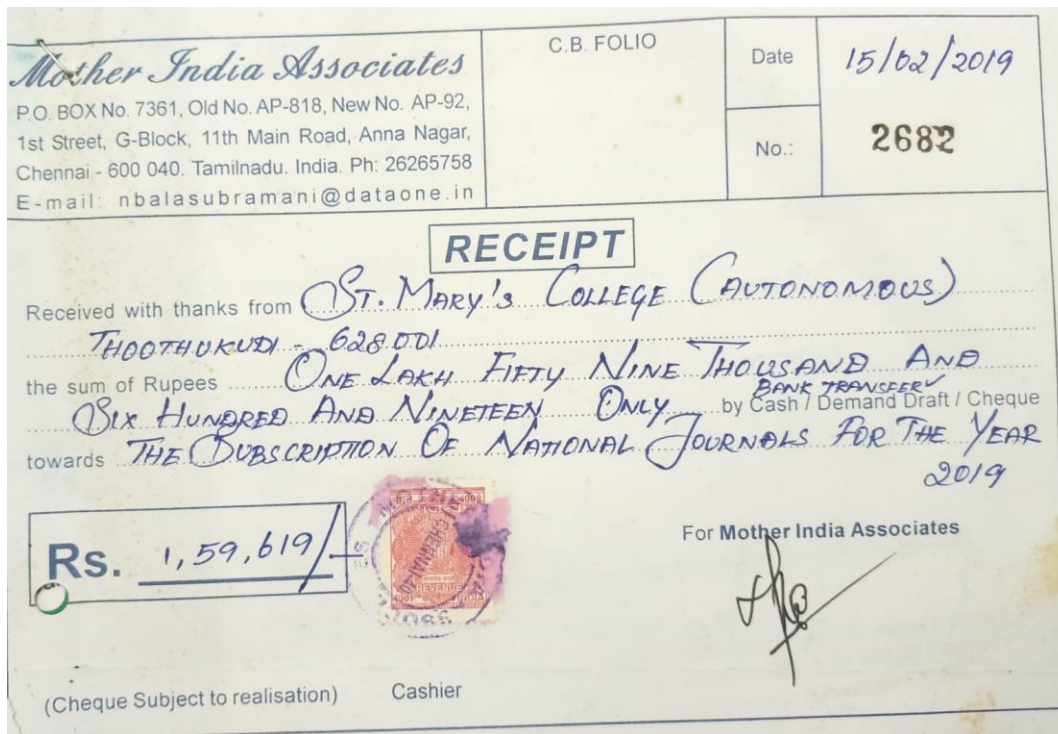 Mother India Associates
P.O. BOX No. 7361, Old No. AP-818, New No. AP-92,
1st Street, G-Block, 11th Main Road, Anna Nagar,
Chennai - 600 040. Tamilnadu. India. Ph: 26265758
E-mail: nbalasubramani@dataone.in
C.B. FOLIO
Date 15/02/2019
No.: 2682
RECEIPT
Received with thanks from ST. MARY'S COLLEGE (AUTONOMOUS)
THOOTHUKUDI - 628001
the sum of Rupees ONE LAKH FIFTY NINE THOUSAND AND
BANK TRANSFER
SIX HUNDRED AND NINETEEN ONLY by Cash / Demand Draft / Cheque
towards THE SUBSCRIPTION OF NATIONAL JOURNALS FOR THE YEAR
2019
Rs. 1,59,619/-
REVENUE
INDIA
CHENNAI-40
For Mother India Associates
(Cheque Subject to realisation) Cashier